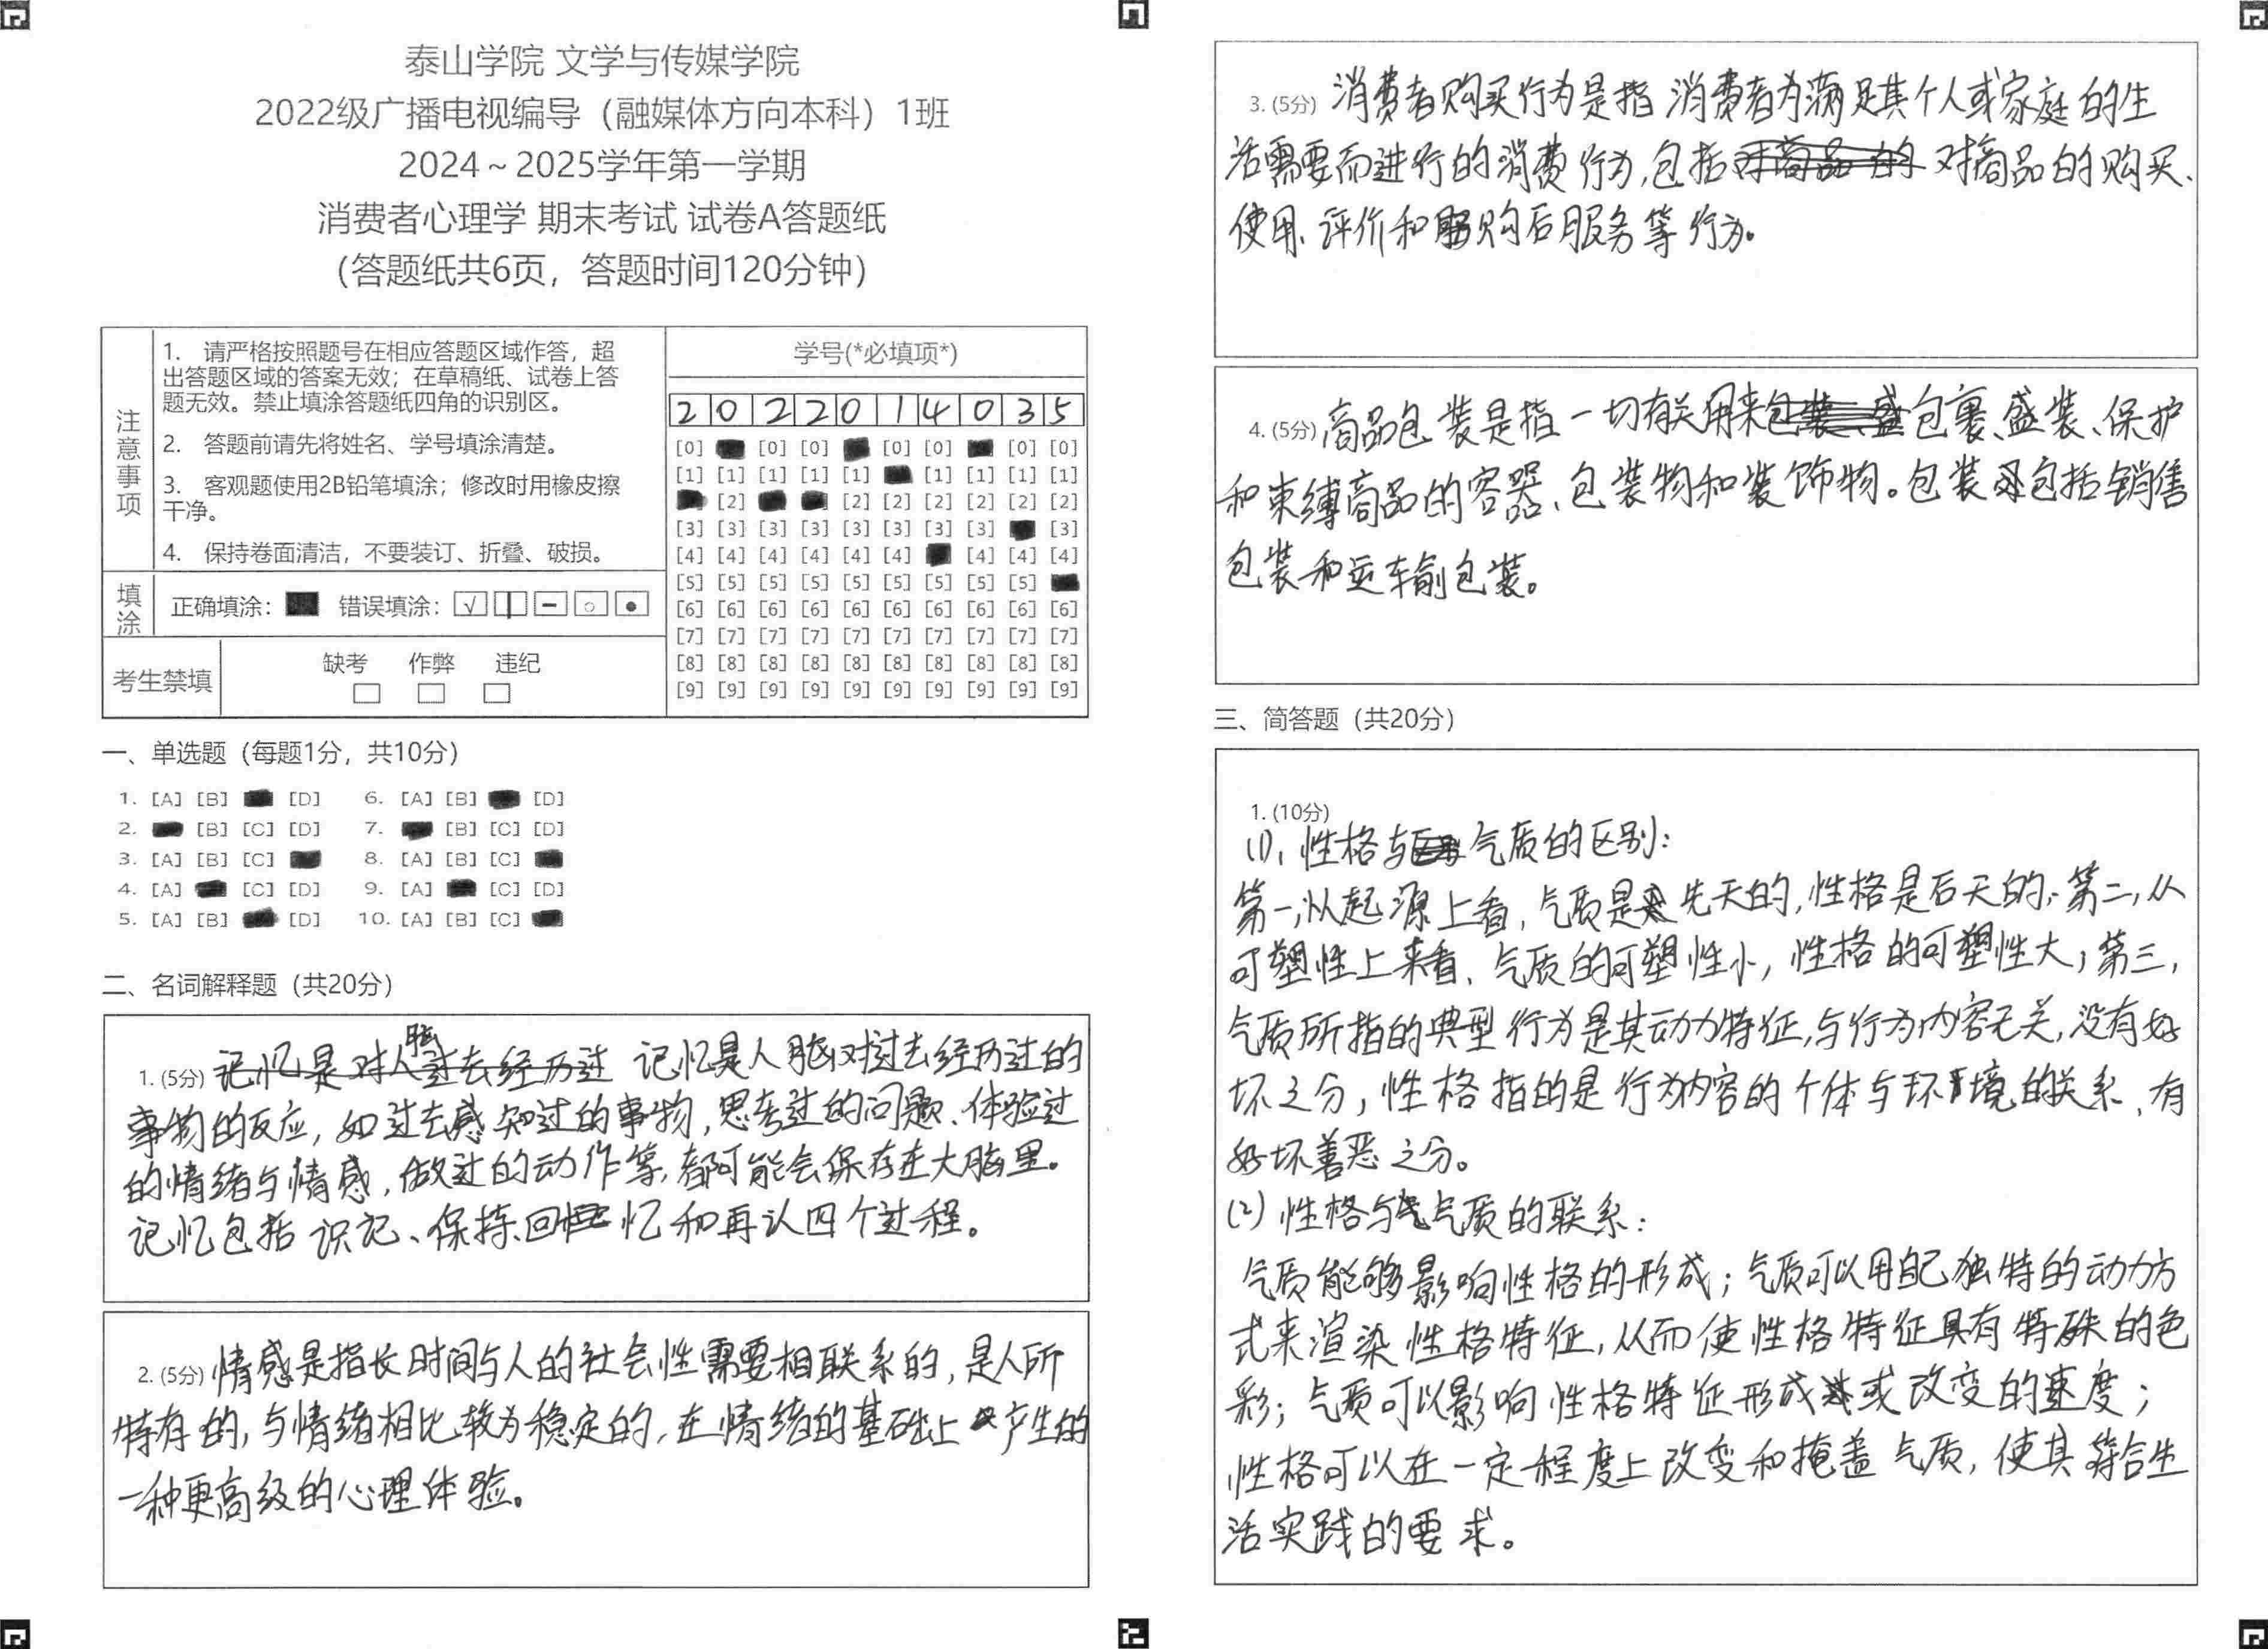 泰山学院 文学与传媒学院
2022级广播电视编导（融媒体方向本科）1班
2024～2025学年第一学期
消费者心理学 期末考试 试卷A答题纸
（答题纸共6页，答题时间120分钟）
注意事项
1. 请严格按照题号在相应答题区域作答，超
出答题区域的答案无效；在草稿纸、试卷上答
题无效。禁止填涂答题纸四角的识别区。
2. 答题前请先将姓名、学号填涂清楚。
3. 客观题使用2B铅笔填涂；修改时用橡皮擦
干净。
4. 保持卷面清洁，不要装订、折叠、破损。
填涂
正确填涂： 错误填涂：
考生禁填
缺考 作弊 违纪
学号(*必填项*)
2 0 2 2 0 1 4 0 3 5
[0] [0] [0] [0] [0] [0] [0]
[1] [1] [1] [1] [1] [1] [1] [1] [1]
[2] [2] [2] [2] [2] [2] [2]
[3] [3] [3] [3] [3] [3] [3] [3] [3]
[4] [4] [4] [4] [4] [4] [4] [4] [4]
[5] [5] [5] [5] [5] [5] [5] [5] [5]
[6] [6] [6] [6] [6] [6] [6] [6] [6] [6]
[7] [7] [7] [7] [7] [7] [7] [7] [7] [7]
[8] [8] [8] [8] [8] [8] [8] [8] [8] [8]
[9] [9] [9] [9] [9] [9] [9] [9] [9] [9]
一、单选题（每题1分，共10分）
1. [A] [B] [D] 6. [A] [B] [D]
2. [B] [C] [D] 7. [B] [C] [D]
3. [A] [B] [C] 8. [A] [B] [C]
4. [A] [C] [D] 9. [A] [C] [D]
5. [A] [B] [D] 10. [A] [B] [C]
二、名词解释题（共20分）
1. (5分) 记忆是人脑对过去经历过的
事物的反应，如过去感知过的事物，思考过的问题、体验过
的情绪与情感，做过的动作等，都可能会保存在大脑里。
记忆包括识记、保持、回忆和再认四个过程。
2. (5分) 情感是指长时间与人的社会性需要相联系的，是人所
特有的，与情绪相比较为稳定的，在情绪的基础上产生的
一种更高级的心理体验。
3. (5分) 消费者购买行为是指消费者为满足其个人或家庭的生
活需要而进行的消费行为，包括对商品的购买、
使用、评价和购后服务等行为。
4. (5分) 商品包装是指一切有关用来包裹、盛装、保护
和束缚商品的容器、包装物和装饰物。包装包括销售
包装和运输包装。
三、简答题（共20分）
1. (10分)
(1)、性格与气质的区别：
第一，从起源上看，气质是先天的，性格是后天的；第二，从
可塑性上来看，气质的可塑性小，性格的可塑性大；第三，
气质所指的典型行为是其动力特征，与行为内容无关，没有好
坏之分，性格指的是行为内容的个体与环境的关系，有
好坏善恶之分。
(2) 性格与气质的联系：
气质能够影响性格的形成；气质可以用自己独特的动力方
式来渲染性格特征，从而使性格特征具有特殊的色
彩；气质可以影响性格特征形成或改变的速度；
性格可以在一定程度上改变和掩盖气质，使其符合生
活实践的要求。